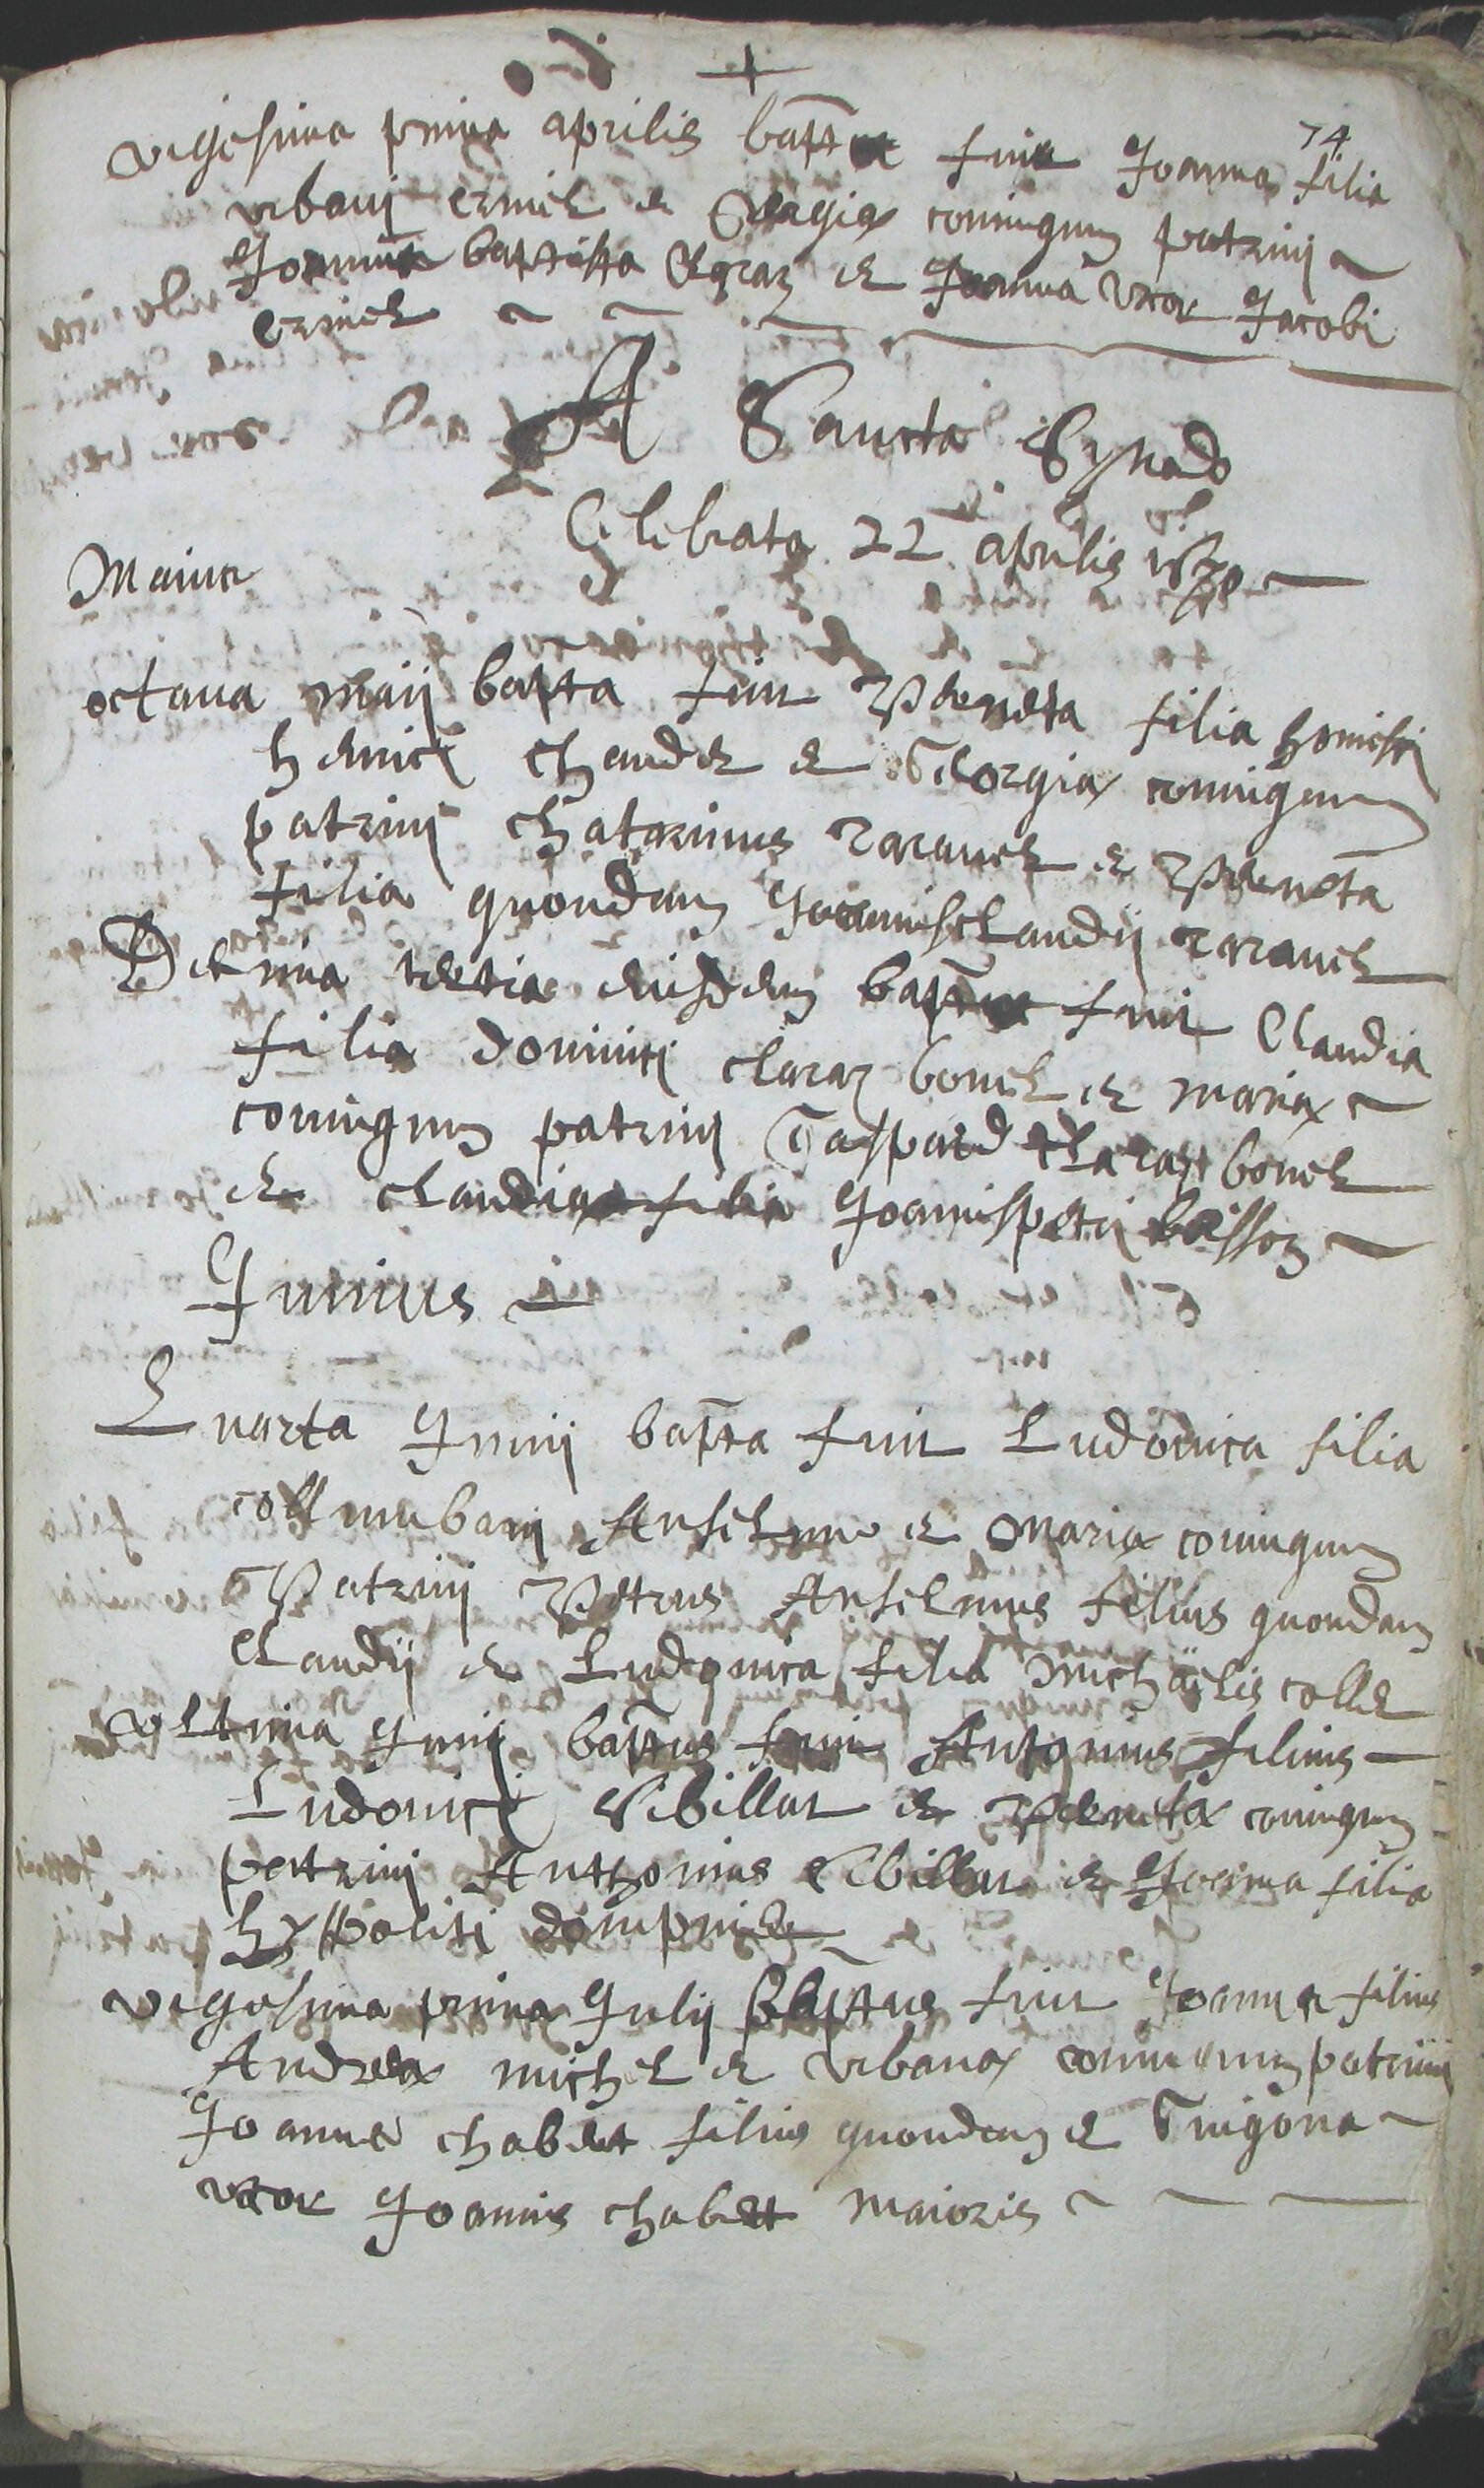 +
74
vigesima prima aprilis bapta fuit Joanna filia
vrbanj ermel et Pelagiæ coniugum patrinj
Joannes baptista et Joanna vxor Jacobi
ermel
A Sancta Synodo
Celebrata 22 aprilis
Maius
octaua maij bapta fuit Perneta filia honesti
henrici et Georgiæ coniugum
patrinj et Perneta
filia quondam Joannisclaudij
Decima tertia eiusdem bapta fuit Claudia
filia dominici claraz bonel et mariæ
coniugum patrinj Gaspard claraz bonel
et claudia filia Joannispetri
Junius
Quarta Junij bapta fuit Ludouica filia
collumbanj Anselmo et Mariæ coniugum
Patrinj Petrus Anselmus filius quondam
Claudij et Ludouica filia Michaëlis colle
vltima Junij baptus fuit Antonius filius
Ludouici Sibillat et Pernetæ coniugum
patrinj Anthonius Sibillat et Joanna filia
hyppoliti dompnier
vigesima prima Julij baptus fuit Joannes filius
Andreæ michel et vrbanæ coniugum patrinj
Joannes chabert filius quondam et Guigona
vxor Joannis chabert maioris